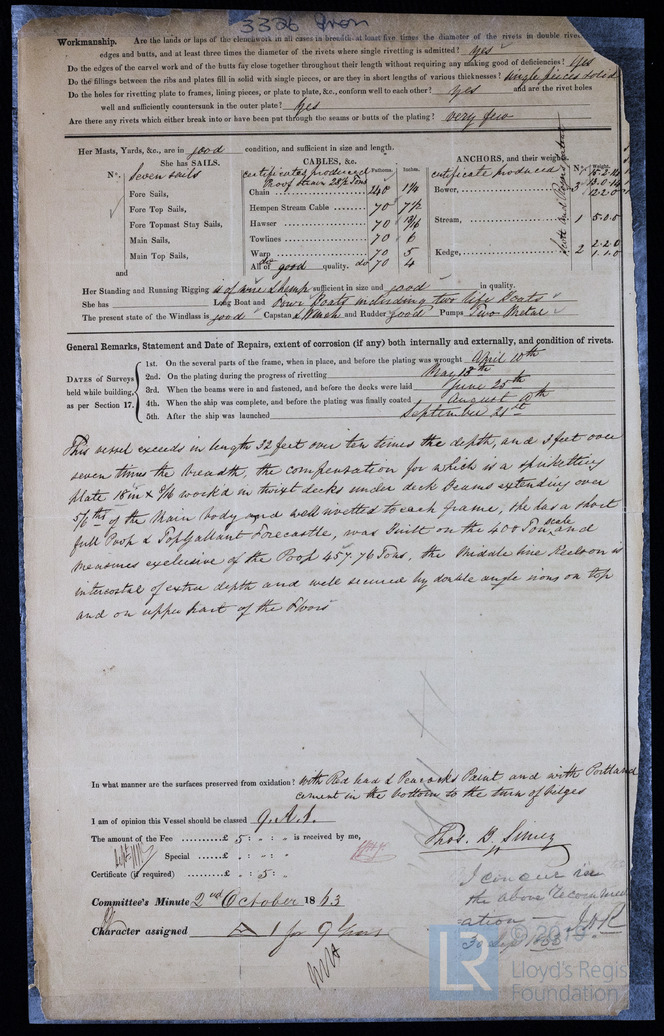 3326 Iron
Workmanship. Are the lands or laps of the clenchwork in all cases in breadth at least five times the diameter of the rivets in double rivet
edges and butts, and at least three times the diameter of the rivets where single rivetting is admitted? yes
Do the edges of the carvel work and of the butts fay close together throughout their length without requiring any making good of deficiencies? yes
Do the fillings between the ribs and plates fill in solid with single pieces, or are they in short lengths of various thicknesses? single pieces solid
Do the holes for rivetting plate to frames, lining pieces, or plate to plate, &c., conform well to each other? yes and are the rivet holes
well and sufficiently countersunk in the outer plate? yes
Are there any rivets which either break into or have been put through the seams or butts of the plating? very few
Her Masts, Yards, &c., are in good condition, and sufficient in size and length.
She has SAILS. CABLES, &c. Fathoms. Inches. ANCHORS, and their weights
No. Seven sails certificates produced certificate produced No. Weight.
Proof strain 28½ Tons
Fore Sails, Chain 240 Bower, 3 15.2.14
13.0.14
12.2.0
Fore Top Sails, Hempen Stream Cable 70 7½
Fore Topmast Stay Sails, Hawser 70 Stream, 1 5.0.0
Main Sails, Towlines 70 6
Main Top Sails, Warp 70 5 Kedge, 2 2.2.0
1.1.0
and All of good quality. do 70 4
Her Standing and Running Rigging is of wire & hemp sufficient in size and good in quality.
She has Long Boat and Four Boats including two life Boats
The present state of the Windlass is good Capstan & Winch and Rudder good Pumps Two Metal
General Remarks, Statement and Date of Repairs, extent of corrosion (if any) both internally and externally, and condition of rivets.
DATES of Surveys held while building, as per Section 17.
1st. On the several parts of the frame, when in place, and before the plating was wrought April 10th
2nd. On the plating during the progress of rivetting May 18th
3rd. When the beams were in and fastened, and before the decks were laid June 25th
4th. When the ship was complete, and before the plating was finally coated August 10th
5th. After the ship was launched September 21st
This vessel exceeds in length 32 feet over ten times the depth, and 3 feet over
seven times the breadth, the compensation for which is a spirketting
plate 18 in x 9/16 work'd in twixt decks under deck beams extending over
5/6ths of the Main body and well rivetted to each frame, she has a short
full Poop & TopGallant Forecastle, was Built on the 400 Ton scale and
measures exclusive of the Poop 457.76 Tons, the Middle line Keelson is
intercostal of extra depth and well secured by double angle irons on top
and on upper part of the Floors
In what manner are the surfaces preserved from oxidation? with Red lead & Peacocks Paint and with Portland
cement in the bottom to the turn of bilges
I am of opinion this Vessel should be classed 9.A.1.
The amount of the Fee .........£ 5 : „ : „ is received by me,
Special .........£ „ : „ : „
Certificate (if required) .........£ „ : 5 : „
Thos. B. Simey
I concur in
the above recommend
ation
30 Sept 1863
Committee's Minute 2nd October 1863
Character assigned A 1 for 9 Years
© 2019
LR Lloyd's Regis
Foundation